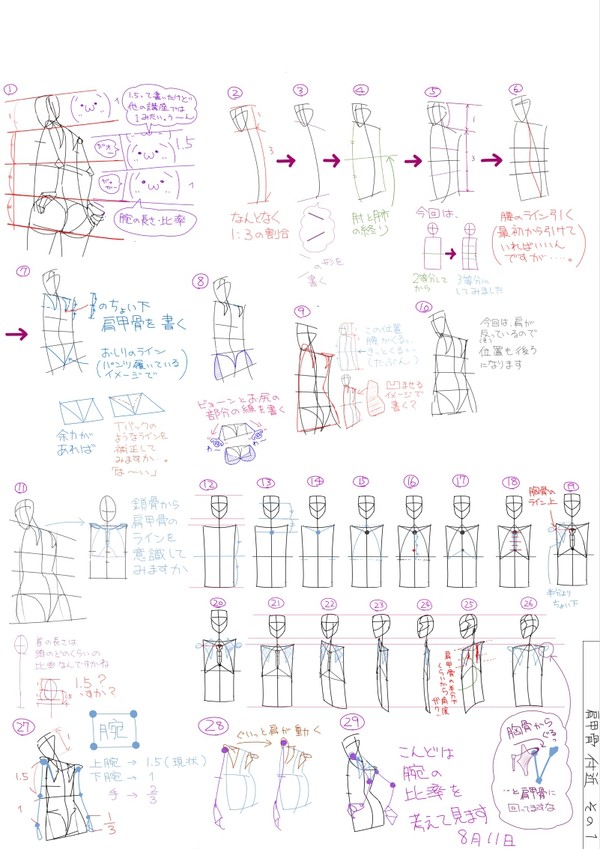 ①
1
1.5って書いたけど
他の講座では
1みたい。うーん
1.5
1
腕の長さ・比率
②
1
3
なんとなく
1:3の割合
③
の形を
書く
④
肘と肺の
終り
⑤
1
3
今回は、
2等分して
から
3等分に
してみました
⑥
腰のライン引く
(最初から引けて
いればいいん
ですが・・・・。)
⑦
のちょい下
肩甲骨を書く
おしりのライン
(パンツ履いている
イメージで)
余力が
あれば
Tバックの
ようなラインを
補正して
みますか。
「は〜い」
⑧
ビューンとお尻の
部分の線を書く
⑨
この位置
腕がくる、
きっとくる…
(たぶん)
凹ませる
イメージで
書く?
⑩
今回は、肩が
反っているので
位置も後ろ
になります
⑪
鎖骨から
肩甲骨の
ラインを
意識して
みますか
首の長さは
頭のどのくらいの
比率なんですかね
1.5?
ですか?
⑫
⑬
⑭
⑮
⑯
⑰
⑱
胸骨の
ライン上
⑲
半分より
ちょい下
⑳
㉑
㉒
㉓
㉔
㉕
㉖
胸骨から
ぐるっ
…と肩甲骨に
回ってますな
㉗
腕
1
1.5
1
上腕→1.5(現状)
下腕→1
手→2/3
1/3
㉘
ぐいっと肩が動く
㉙
こんどは
腕の
比率を
考えて見ます
8月11日
肩甲骨付近 その1